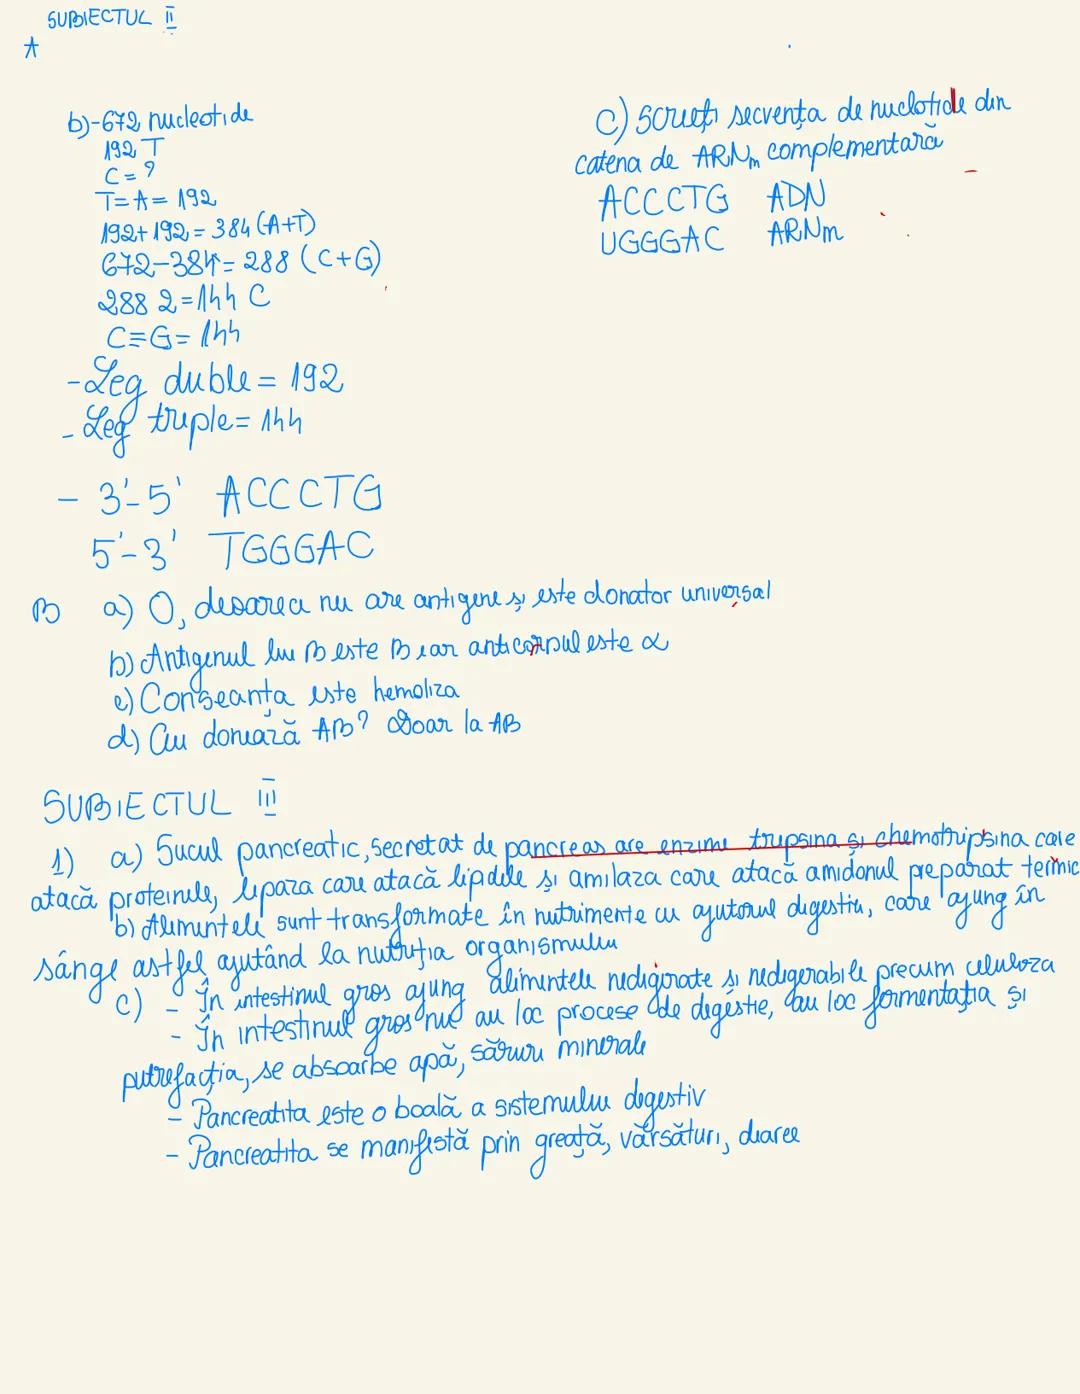 SUBIECTUL II
A
b)-672 nucleotide
192 T
C = ?
T=A= 192
192+192=384 (A+T)
672-384=288 (C+G)
288 2=144 C
C≡G=144
-Leg duble= 192
-Leg triple= 144
- 3'-5' ACCCTG
5'-3' TGGGAC
c) Scrieți secvența de nuclotide din
catena de ARNm complementară
ACCCTG ADN
UGGGAC ARNm
B a) O, deoarece nu are antigene și este donator universal
b) Antigenul lui B este B iar anticorpul este α
c) Conseanța este hemoliza
d) Cui donează AB? Doar la AB
SUBIECTUL III
1) a) Sucul pancreatic, secretat de pancreas are enzime tripsina și chemotripsina care
atacă proteinele, lipaza care atacă lipidele și amilaza care atacă amidonul preparat termic
b) Alimentele sunt transformate în nutrimente cu ajutorul digestiei, care ajung în
sânge astfel ajutând la nutriția organismului
c) - În intestinul gros ajung alimentele nedigerate și nedigerabile precum celuloza
- În intestinul gros nu au loc procese de digestie, au loc fermentația și
putrefacția, se absoarbe apă, săruri minerale
- Pancreatita este o boală a sistemului digestiv
- Pancreatita se manifestă prin greață, vărsături, diaree